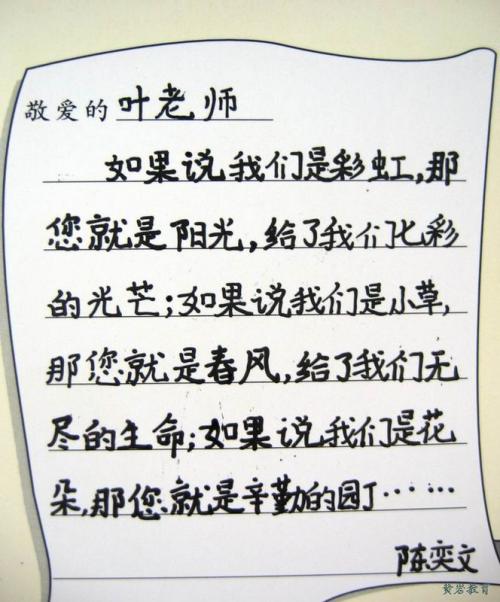 敬爱的叶老师
如果说我们是彩虹,那
您就是阳光,给了我们七彩
的光芒;如果说我们是小草,
那您就是春风,给了我们无
尽的生命;如果说我们是花
朵,那您就是辛勤的园丁……
陈奕文
黄岩教育